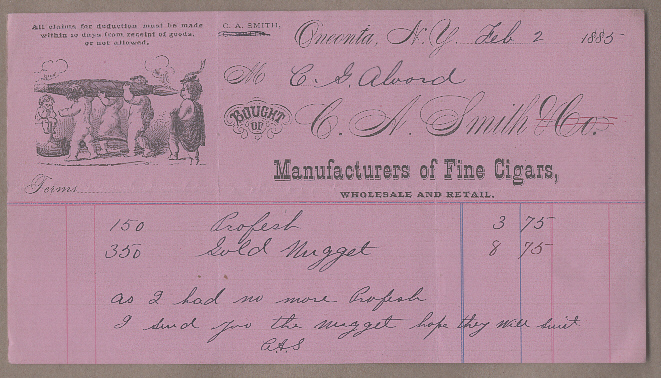 All claims for deduction must be made
within 10 days from receipt of goods,
or not allowed.
C. A. SMITH,
Oneonta, N.Y. Feb 2 1885
M C. G. Alvord
BOUGHT OF C. A. Smith & Co.
Manufacturers of Fine Cigars,
WHOLESALE AND RETAIL.
Terms
150 Profesh 3 75
350 Gold Nugget 8 75
as I had no more Profesh
I send you the nugget hope they will suit
CAS